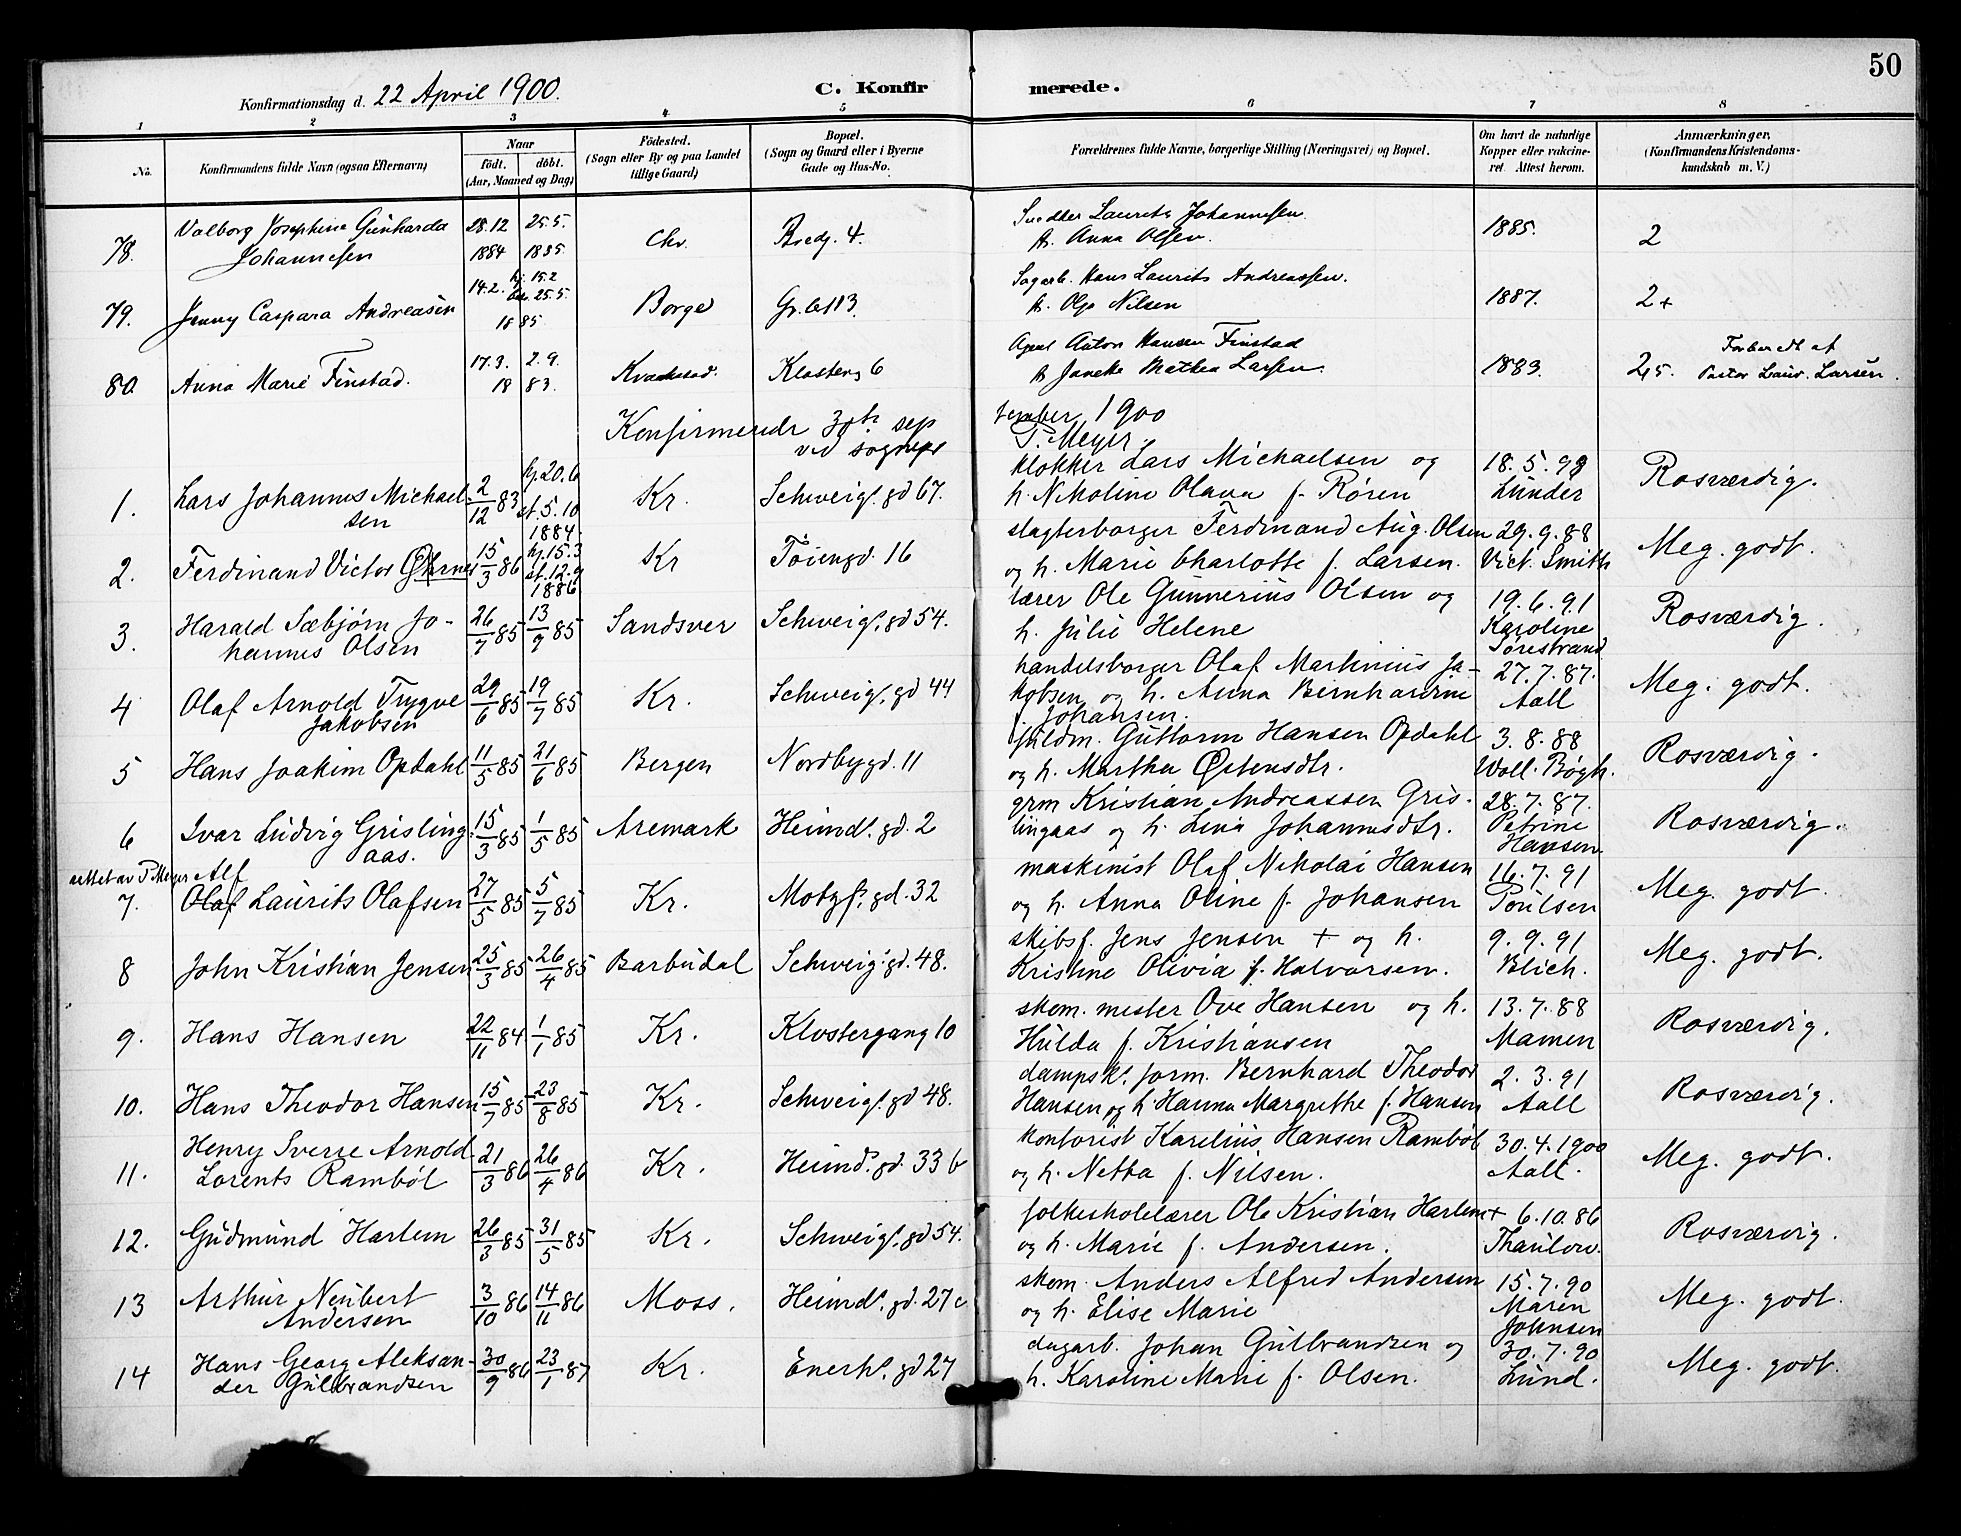 50
Konfirmationsdag d. 22 April 1900.
C. Konfirmerede.
1 2 3 4 5 6 7 8
No.
Konfirmandens fulde Navn (ogsaa Efternavn)
Naar
født. døbt.
(Aar, Maaned og Dag)
Fødested.
(Sogn eller By og paa Landet
tillige Gaard)
Bopæl.
(Sogn og Gaard eller i Byerne
Gade og Hus-No.
Forældrenes fulde Navne, borgerlige Stilling (Næringsvei) og Bopæl.
Om havt de naturlige
Kopper eller vakcine-
ret. Attest herom.
Anmærkninger,
(Konfirmandens Kristendoms-
kundskab m. V.)
78. Valborg Josephine Gunharda
Johannesen
28.12 1884
25.5. 1885.
Chr.
Bredg. 4.
Snedker Laurits Johannesen
h. Anna Olsen.
1885.
2
79. Jenny Caspara Andreasen
14.2. hj. 15.2
25.5.
1885
Borge
Gr.l. 113.
Sagarb. Hans Laurits Andreassen.
h. Olga Nilsen
1887.
2+
80. Anna Marie Finstad.
17.3. 2.9.
1883.
Kraakstad.
Klosterg 6
Agent Anton Hansen Finstad
h. Janeke Mathea Larsen.
1883.
2,5. Forberedt af
Pastor Laur. Larsen.
Konfirmerede 30th september 1900
ved sognepr P. Meyer.
1. Lars Johannes Michael-
sen
2/12 83
hj. 20.6
st. 5.10
1884
Kr.
Schweigs. gd 67.
klokker Lars Michaelsen og
h. Nikoline Olava f. Røren
18.5.98
Lunder
Rosværdig.
2. Ferdinand Victor Ørnes
15/3 86
hj. 15.3
st. 12.9
1886
Kr
Tøiengd. 16
slagterborger Ferdinand Aug. Olsen
og h. Marie Charlotte f. Larsen.
29.9.88
Vict. Smith
Meg. godt.
3. Harald Sæbjørn Jo-
hannes Olsen
26/7 85
13/9 85
Sandsver
Schweigs. gd 54.
lærer Ole Gunnerius Olsen og
h. Julie Helene
19.6.91
Karoline
Sørestrand
Rosværdig.
4 Olaf Arnold Trygve
Jakobsen
29/6 85
19/7 85
Kr.
Schweigs. gd 44
handelsborger Olaf Martinius Ja-
kobsen og h. Anna Bernhardine
f. Johansen.
27.7.87.
Aall
Meg. godt.
5 Hans Joakim Opdahl
11/5 85
21/6 85
Bergen
Nordbygd. 11
fuldm. Guttorm Hansen Opdahl
og h. Martha Østensdtr.
3.8.88
Voll. Bøgh.
Rosværdig.
6 Ivar Ludvig Grisling-
aas.
15/3 85
1/5 85
Aremark
Heimds. gd. 2
grm Kristian Andreassen Gris-
lingaas og h. Lina Johannesdtr.
28.7.87.
Petrine
Hansen
Rosværdig.
rettet av P Meyer Alf
7. Olaf Laurits Olafsen
27/5 85
5/7 85
Kr.
Motzf. gd. 32
maskinist Olaf Nikolai Hansen
og h. Anna Oline f. Johansen
16.7.91
Poulsen
Meg. godt.
8 John Kristian Jensen
25/3 85
26/4 85
Barbudal
Schweig. gd. 48.
skibsf. Jens Jensen + og h.
Kristine Olivia f. Halvorsen.
9.9.91
Blich.
Meg. godt.
9. Hans Hansen
22/11 84
1/1 85
Kr.
Klostergang 10
skom. mester Ove Hansen og h.
Hulda f. Kristiansen
13.7.88
Mamen
Rosværdig.
10. Hans Theodor Hansen
15/7 85
23/8 85
Kr.
Schweigs. gd 48.
dampsk. form. Bernhard Theodor
Hansen og h Hanna Margrethe f. Hansen
2.3.91
Aall
Rosværdig.
11. Henry Sverre Arnold
Lorents Rambøl
21/3 86
26/4 86
Kr.
Heimd. gd. 33 b
kontorist Karelius Hansen Rambøl
og h. Netta f. Nilsen.
30.4.1900
Aall.
Meg. godt.
12. Gudmund Harlem
26/3 85
31/5 85
Kr.
Schweigs. gd 54.
folkeskolelærer Ole Kristian Harlem +
og h. Marie f. Andersen.
6.10.86
Thaulow.
Rosværdig.
13 Arthur Neubert
Andersen
3/10 86
14/11 86
Moss.
Heimds. gd. 27 c
skom. Anders Alfred Andersen
og h. Elise Marie
15.7.90
Maren
Johnsen
Meg. godt.
14 Hans Georg Aleksan-
der Gulbrandsen
30/9 86
23/1 87
Kr.
Enerh. gd 27
dagarb. Johan Gulbrandsen og
h. Karoline Marie f. Olsen.
30.7.90
Lund.
Meg. godt.